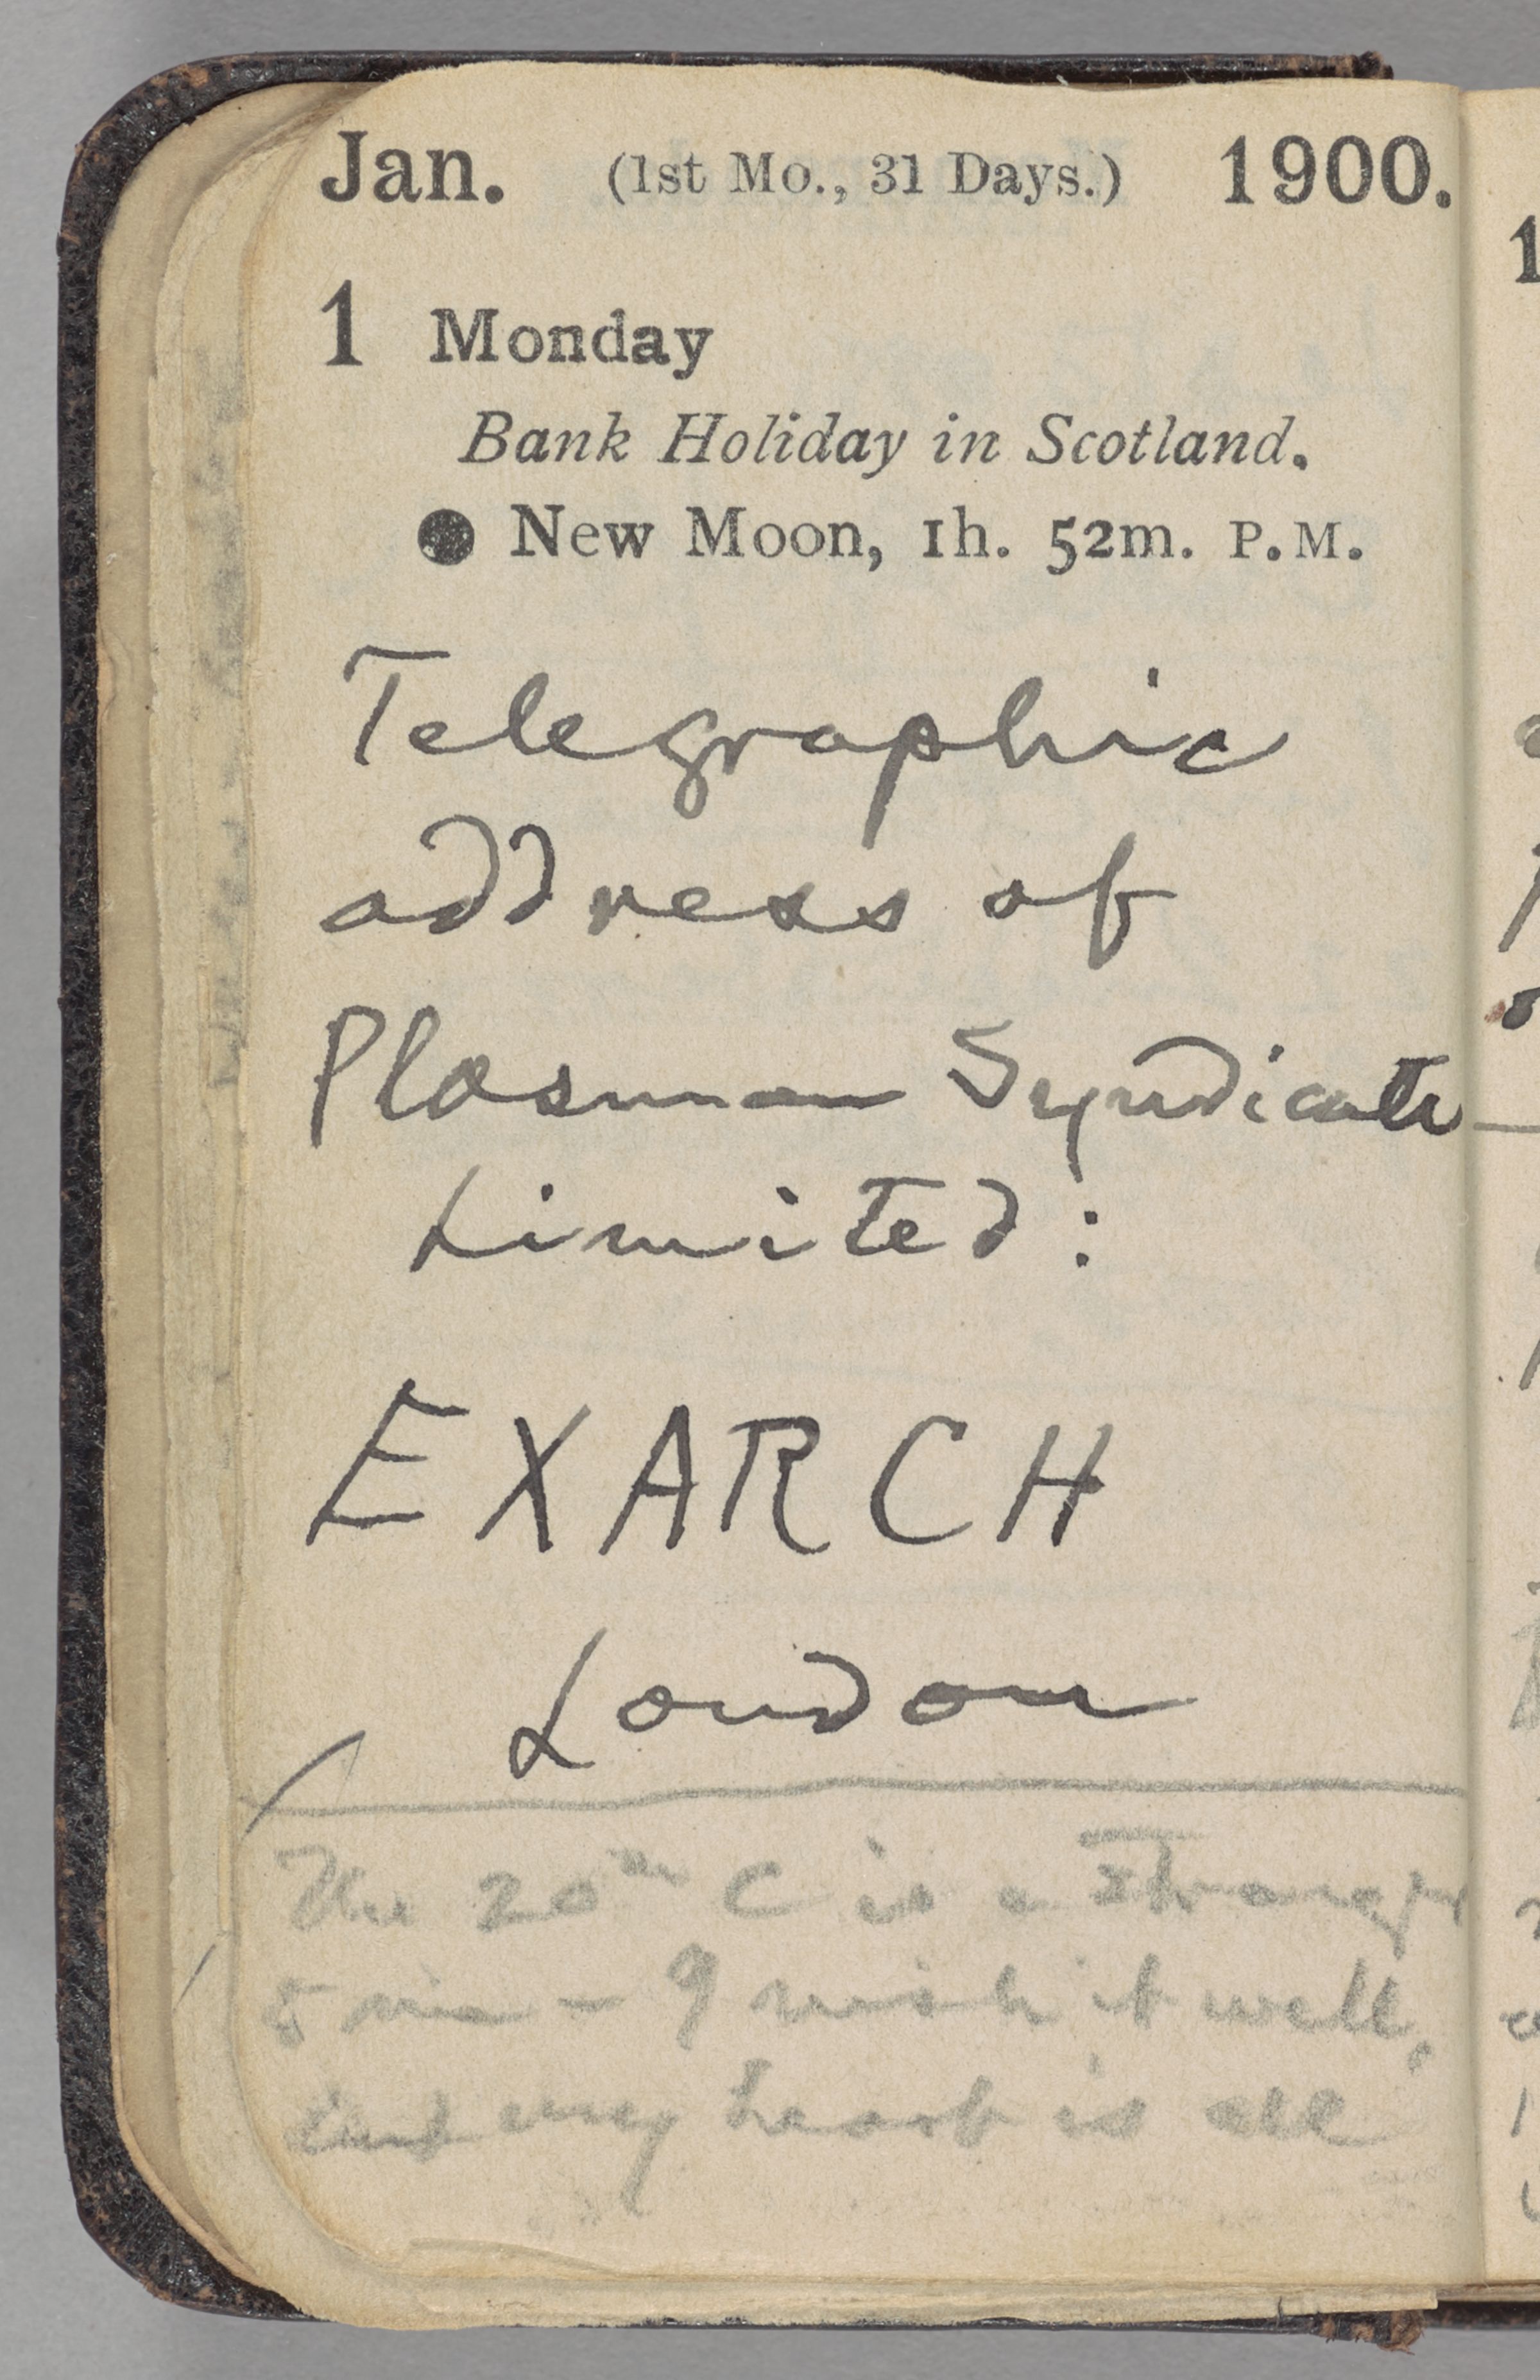 Jan. (1st Mo., 31 Days.) 1900.
1 Monday
Bank Holiday in Scotland.
● New Moon, 1h. 52m. P.M.
Telegraphic
address of
Plasmon Syndicate
Limited:
EXARCH
London
The 20th C is a stranger
to me - I wish it well,
but my heart is all